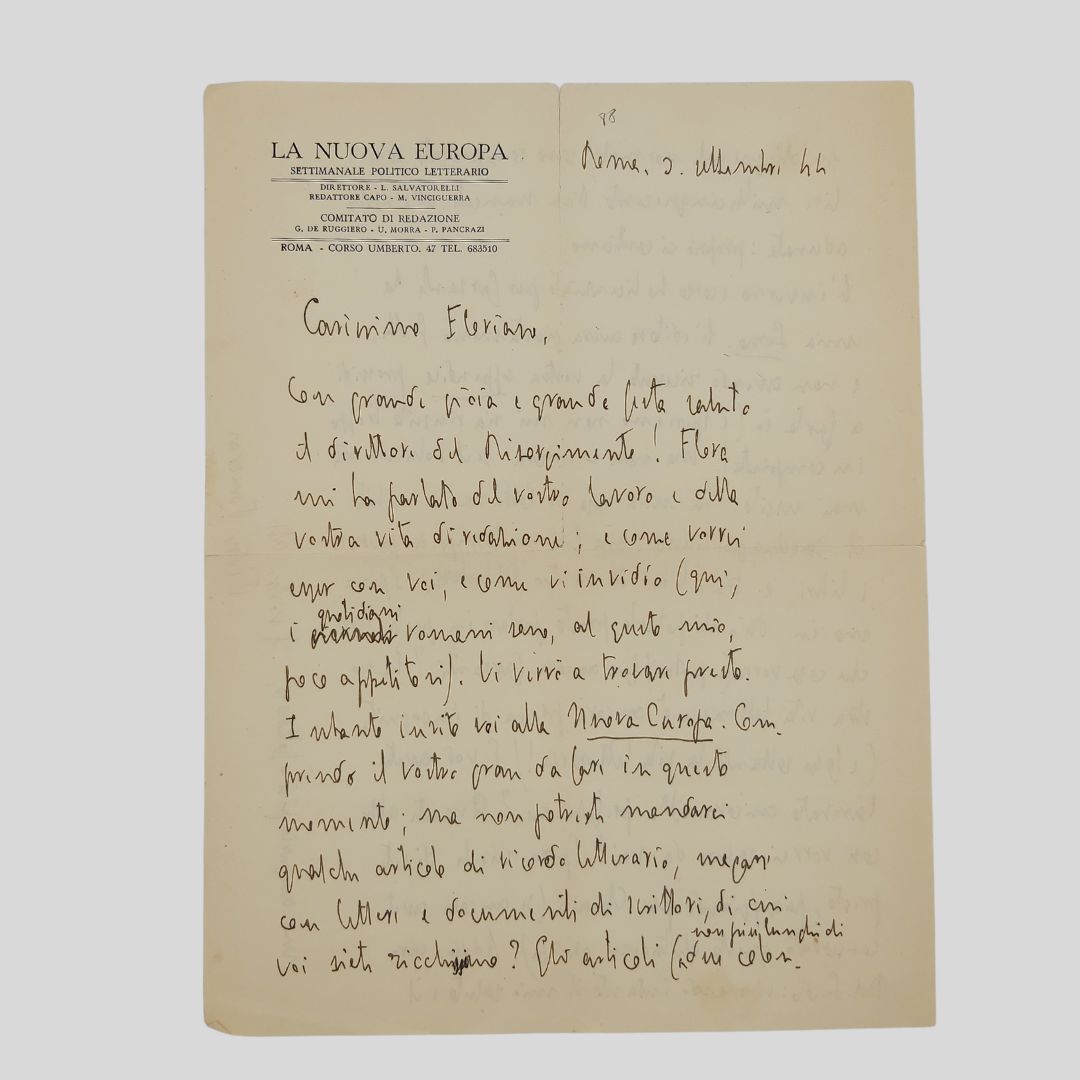 88
LA NUOVA EUROPA
SETTIMANALE POLITICO LETTERARIO
DIRETTORE - L. SALVATORELLI
REDATTORE CAPO - M. VINCIGUERRA
COMITATO DI REDAZIONE
G. DE RUGGIERO - U. MORRA - P. PANCRAZI
ROMA - CORSO UMBERTO. 47 TEL. 683510
Roma. settembre 44
Carissimo Floriano,
Con grande gioia e grande festa saluto
il direttore del Risorgimento! Flora
mi ha parlato del vostro lavoro e della
vostra vita di redazione; e come vorrei
esser con voi, e come vi invidio (qui,
i quotidiani romani sono, al gusto mio,
poco appetitosi). Vi verrò a trovare presto.
Intanto invito voi alla Nuova Europa. Com-
prendo il vostro gran da fare in questo
momento; ma non potresti mandarci
qualche articolo di ricordo letterario, magari
con lettere e documenti di scrittori, di cui
voi siete ricchissimo? Gli articoli (non più lunghi di due colon-